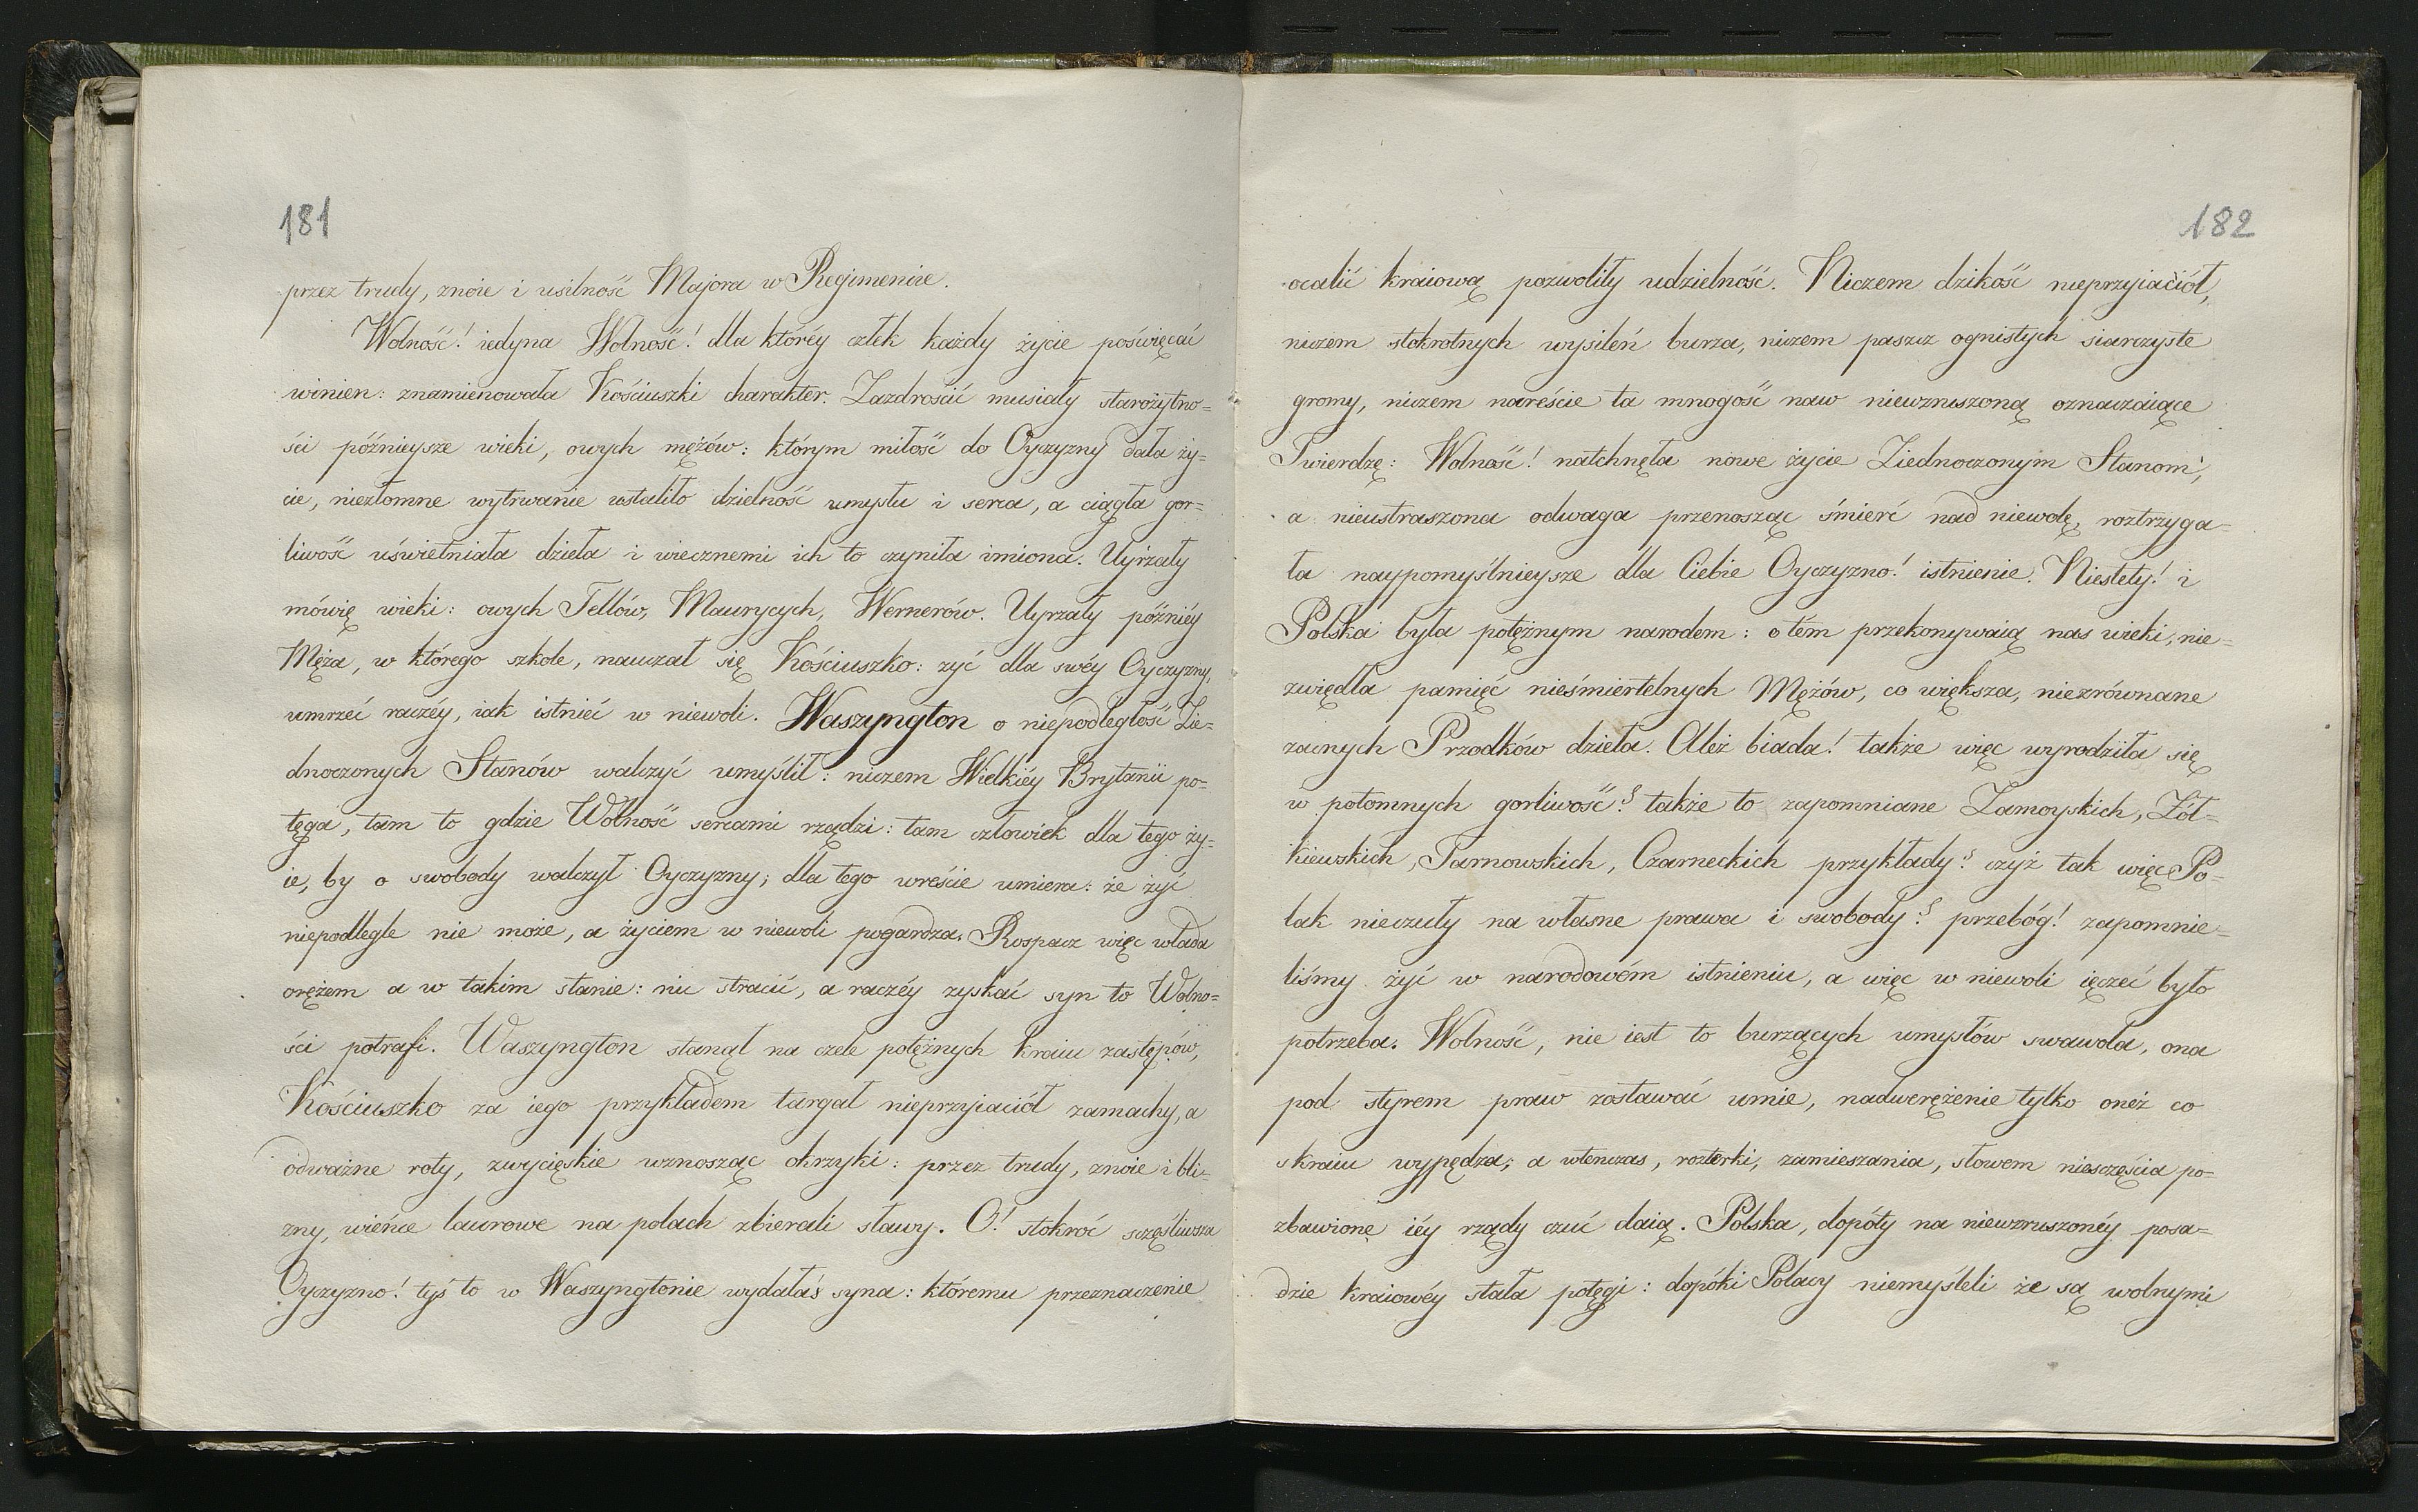 181
przez trudy, znoie i usilność Majora w Regimencie.
Wolność! iedyna Wolność! dla któréy człek każdy życie poświęcać
winien: znamienowała Kościuszki charakter. Zazdrościć musiały starożytno=
ści późnieysze wieki, owych mężów: którym miłość do Oyczyzny dała ży=
cie, niezłomne wytrwanie ustaliło dzielność umysłu i serca, a ciągła gor=
liwość uświetniała dzieła i wiecznemi ich to czyniła imiona. Uyrzały
mówię wieki: owych Tellów, Maurycych, Wernerów. Uyrzały późniéy
Męża, w którego szkole, nauczał się Kościuszko: żyć dla swéy Oyczyzny,
umrzeć raczéy, iak istnieć w niewoli. Waszyngton o niepodległość Zie=
dnoczonych Stanów walczyć umyślił: niczem Wielkiéy Brytanii po=
tęga, tam to gdzie Wolność sercami rządzi: tam człowiek dla tego ży=
ie, by o swobody walczył Oyczyzny; dla tego wreście umiera: że żyć
niepodlegle nie może, a życiem w niewoli pogardza. Rospacz więc włada
orężem a w takim stanie: nic stracić, a raczéy zyskać syn to Wolno=
ści potrafi. Waszyngton stanął na czele potężnych kraiu zastępów,
Kościuszko za iego przykładem targał nieprzyiaciół zamachy, a
odważne roty, zwycięskie wznosząc okrzyki: przez trudy, znoie i bli=
zny, wieńce laurowe na polach zbierali sławy. O! stokroć sczęśliwsza
Oyczyzno! tyś to w Waszyngtonie wydałaś syna: któremu przeznaczenie
182
ocalić kraiową pozwoliły udzielność. Niczem dzikość nieprzyiaciół,
niczem stokrotnych wysileń burza, niczem paszcz ognistych siarczyste
gromy, niczem nareście ta mnogość naw niewzruszoną oznaczaiące
Twierdzę: Wolność! natchnęła nowe życie Ziednoczonym Stanom,
a nieustraszona odwaga przenosząc śmierć nad niewolę, roztrzyga=
ła naypomyślnieysze dla Ciebie Oyczyzno! istnienie. Niestety! i
Polska była potężnym narodem: o tém przekonywaią nas wieki, nie=
zwiędła pamięć nieśmiertelnych Mężów, co większa, niezrównane
zacnych Przodków dzieła. Ależ biada! także więc wyrodziła się
w potomnych gorliwość? także to zapomniane Zamoyskich, Żół=
kiewskich, Tarnowskich, Czarneckich przykłady? czyż tak więc Po=
lak nieczuły na własne prawa i swobody? przebóg! zapomnie=
liśmy żyć w narodowém istnieniu, a więc w niewoli ięczeć było
potrzeba. Wolność, nie iest to burzących umysłów swawola, ona
pod styrem praw zostawać umie, nadwerężenie tylko onéż co
s kraiu wypędza; a wtenczas, rozterki, zamieszania, słowem niesczęścia po=
zbawione iéy rządy czuć daią. Polska, dopóty na niewzruszonéy posa=
dzie kraiowéy stała potęgi: dopóki Polacy niemyśleli że są wolnymi